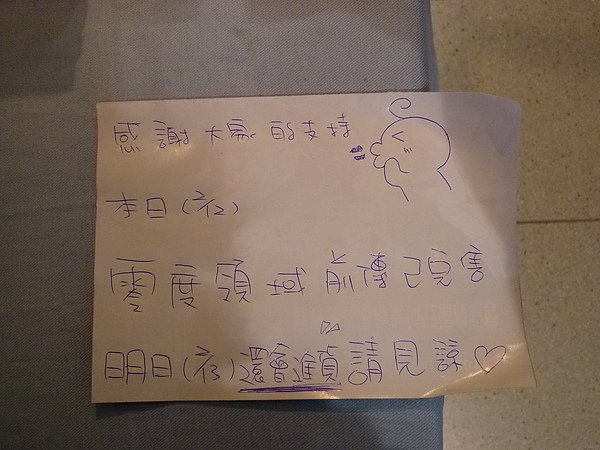 感謝大家的支持
本日(7/2)
零度領域 前傳已完售
明日(7/3)還會進貨請見諒♡